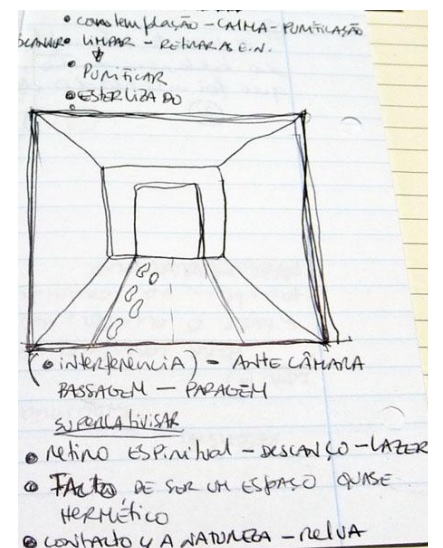 • contemplação – CALMA – PURIFICASÃO
• LIMPAR – RETIRAR AS E.N.
• PURIFICAR
• ESTERLIZADO
(• interferência) – ANTE CÂMARA
PASSAGEM – PARAGEM
SUPERLATIVISAR
• retiro ESPiritual – DESCANÇO – LAZER
• FACTO DE SER UM ESPAÇO QUASE
HERMÉTICO
• CONTACTO C/ A NATUREZA – RelVA